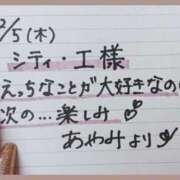 2/5(木)
シティ・工様
えっちなことが大好きなの
次の…楽しみ
あやみより